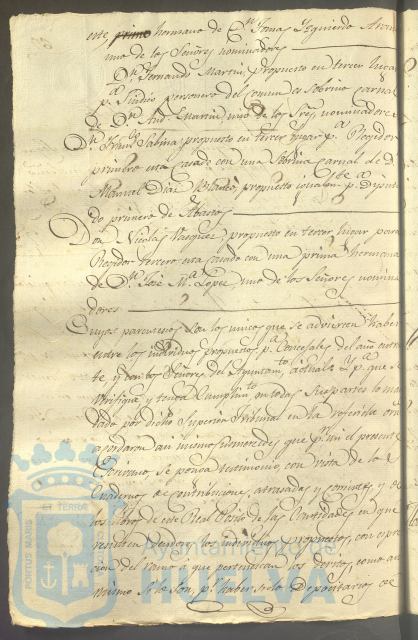 este primo hermano de Dn. Tomas Yzquierdo
uno de los Señores nominadores
Dn. Fernando Martin, propuesto en tercer lugar
pa. Sindico personero del comun es Sobrino carnal
de Dn. Anto. Martin, uno de los Sres. nominadores
Dn. Franco. Sabina propuesto en tercer lugar pa. Regidor
primero esta casado con una Sobrina carnal de Dn.
Manuel Diaz Blanco, propuesto pa. Diputa
do primero de Abastos
Don Nicolas Vazquez, propuesto en tercer lugar para
Regidor tercero esta casado con una prima hermana
de Dn. José Ma. Lopez uno de los Señores nomina
dores
Cuyos parentescos son los unicos que se advierten haber
entre los individuos propuestos pa. Concejales del año entran
te, y con los Señores del Ayuntamto. actual: Y pa. que se
verifique y tenga cumplimto. en todas sus partes lo man
dado por dicho Superior Tribunal en la referida orn.
acordaron asi mismo sus mercedes, que pr. mi el presente
Escrivano, se ponga testimonio, con vista de los
Cuadernos de contribuciones, atrasadas y corrientes, y de
los libros de este Real Posito de las Cantidades en que
resulten deudores los individuos propuestos, con espre
cion del ramo a que pertenecan los devitos, como asi
mismo si lo son, pr. haber sido Depositarios de
PORTUS MARIS
ET TERRA
Ayuntamiento de
HUELVA